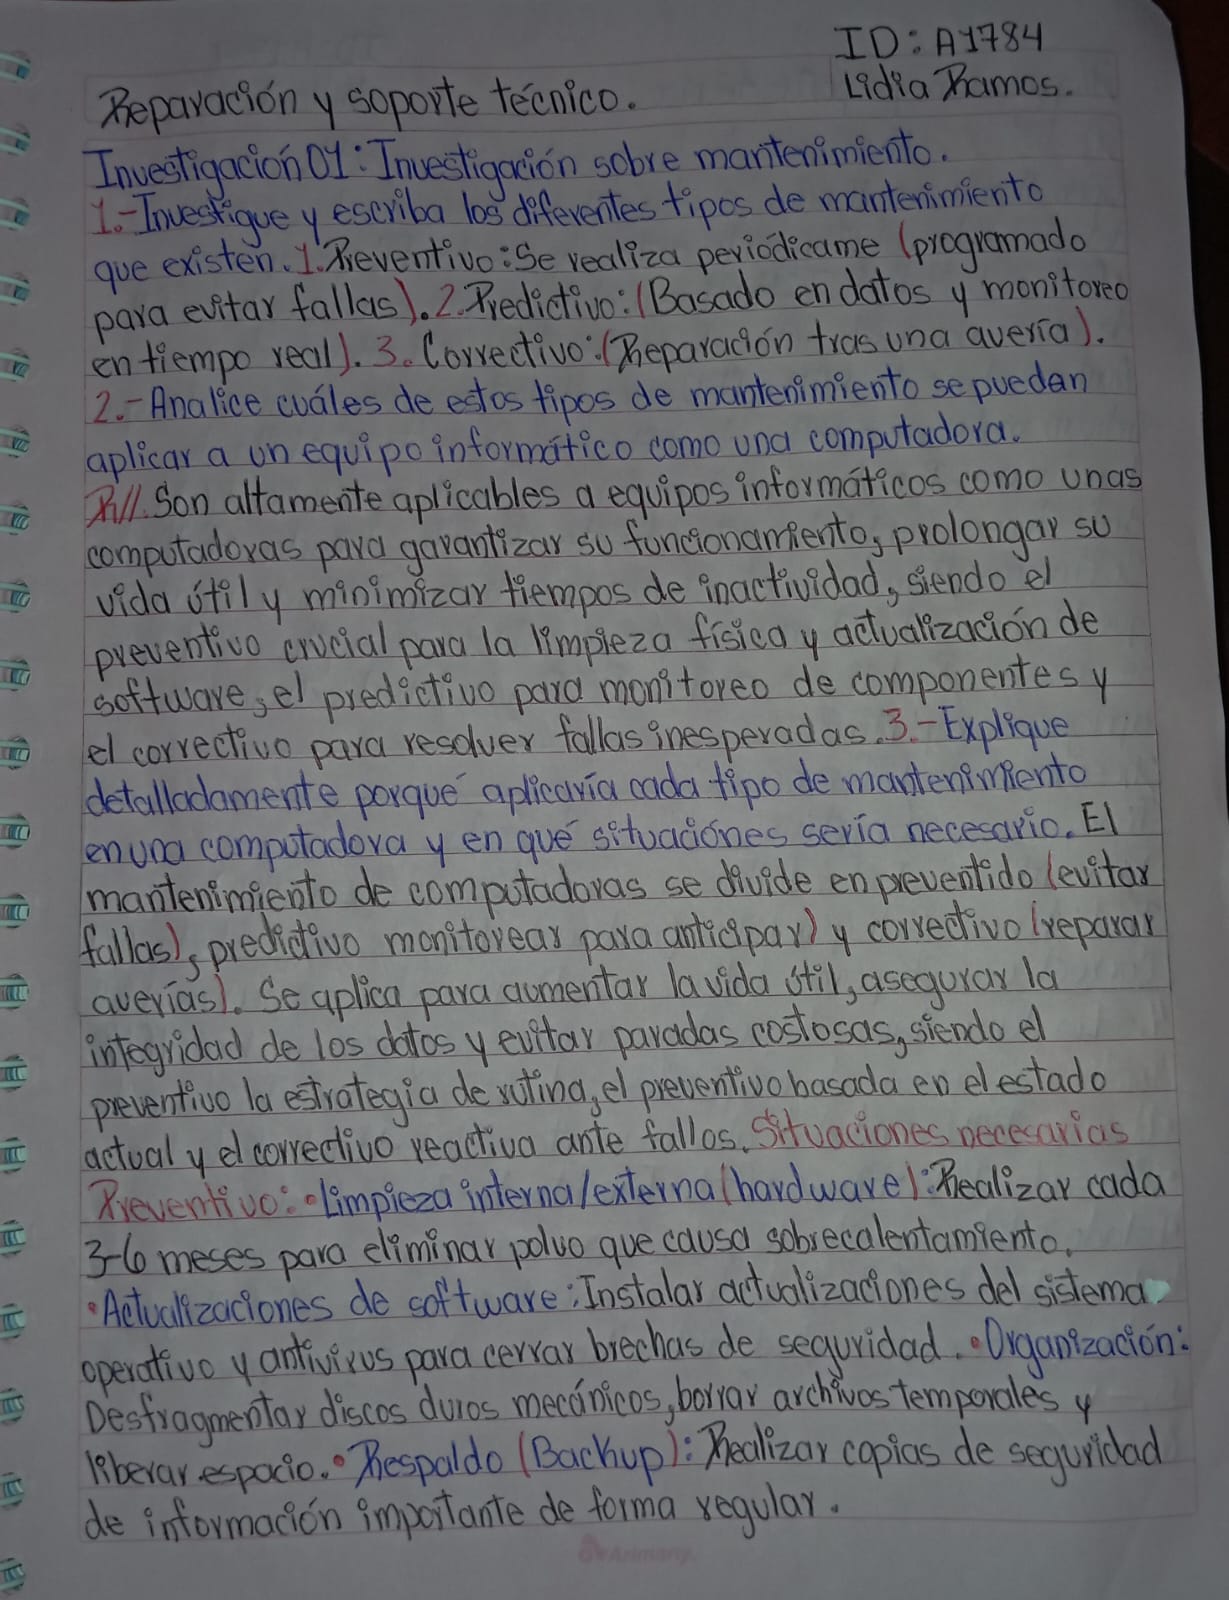 ID: A1784
Lidia Ramos.
Reparación y soporte técnico.
Investigación 01: Investigación sobre mantenimiento.
1.- Investigue y escriba los diferentes tipos de mantenimiento
que existen. 1. Preventivo: Se realiza periódicame (programado
para evitar fallas). 2. Predictivo: (Basado en datos y monitoreo
en tiempo real). 3. Correctivo: (Reparación tras una avería).
2.- Analice cuáles de estos tipos de mantenimiento se puedan
aplicar a un equipo informático como una computadora.
R//. Son altamente aplicables a equipos informáticos como unas
computadoras para garantizar su funcionamiento, prolongar su
vida útil y minimizar tiempos de inactividad, siendo el
preventivo crucial para la limpieza física y actualización de
software, el predictivo para monitoreo de componentes y
el correctivo para resolver fallas inesperadas. 3.- Explique
detalladamente porqué aplicaría cada tipo de mantenimiento
en una computadora y en qué situaciónes sería necesario. El
mantenimiento de computadoras se divide en preventido (evitar
fallas), predictivo monitorear para anticipar) y correctivo (reparar
averías). Se aplica para aumentar la vida útil, asegurar la
integridad de los datos y evitar paradas costosas, siendo el
preventivo la estrategia de rutina, el preventivo basada en el estado
actual y el correctivo reactiva ante fallos. Situaciones necesarias
Preventivo: • Limpieza interna/externa (hardware): Realizar cada
3-6 meses para eliminar polvo que causa sobrecalentamiento.
• Actualizaciones de software: Instalar actualizaciones del sistema
operativo y antivirus para cerrar brechas de seguridad. • Organización:
Desfragmentar discos duros mecánicos, borrar archivos temporales y
liberar espacio. • Respaldo (Backup): Realizar copias de seguridad
de información importante de forma regular.
Arimany